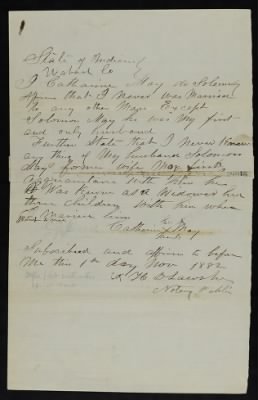 State of Indiana
Wabash Co
I Catharine May do Solemnly
affirm that I Never was Married
to any other Man Except
Solomon May he was My first
and only husband
Further State that I Never Knew
any thing of My husband Solomon
May former wife May first
acquaintance with him he
Was Known as a Widower had
three children with him when
I Married him
Catharine her May
mark
Subscribed and affirm to before
Me this 1st day Nov 1882
Notary Public